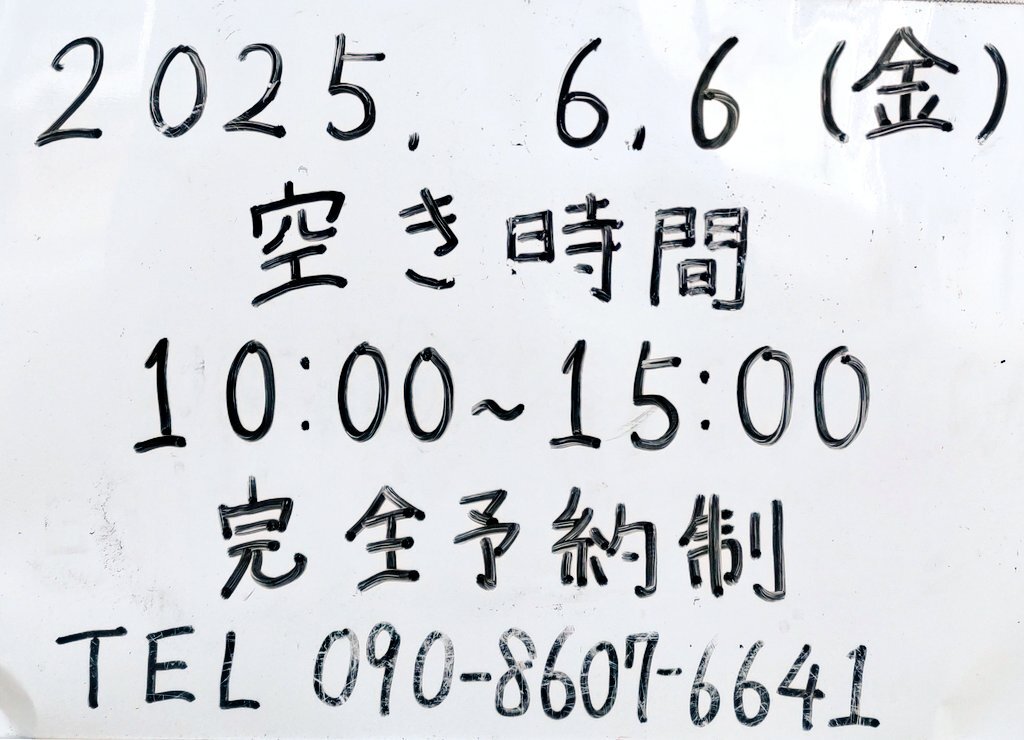 2025. 6.6 (金)
空き時間
10:00~15:00
完全予約制
TEL 090-8607-6641